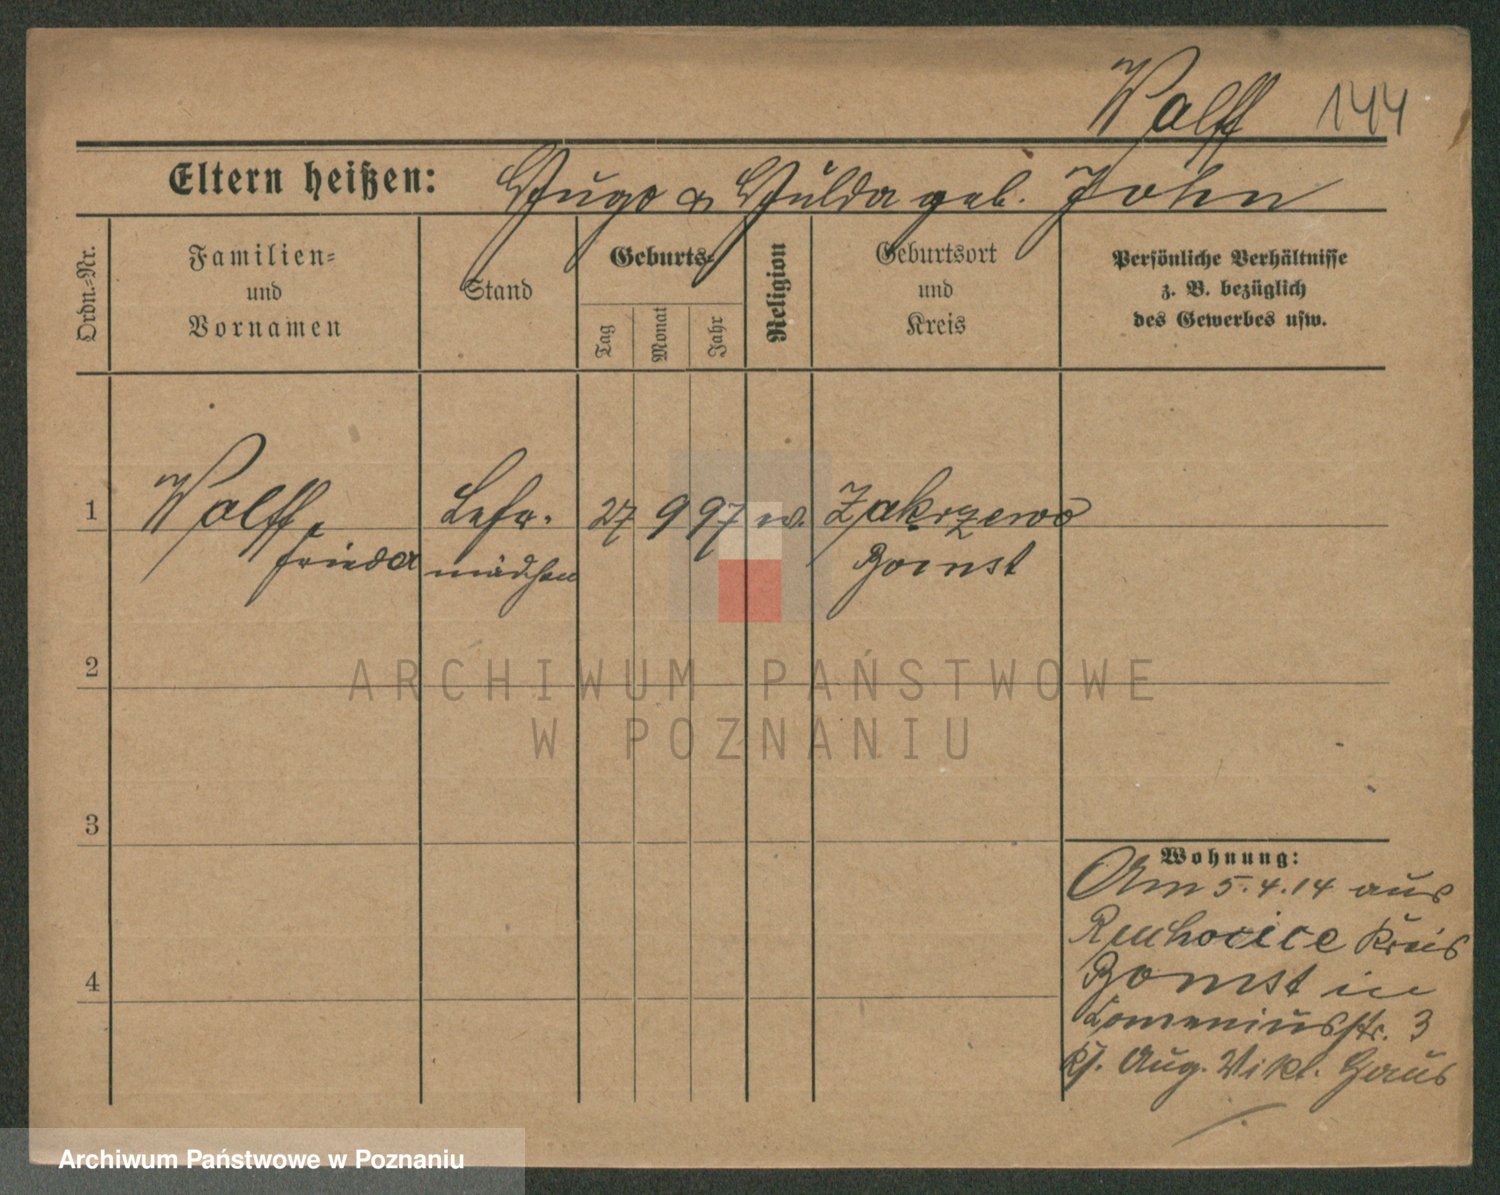 Wolff 144
Eltern heißen: Hugo & Hulda geb. John
Ordn.-Nr.
Familien-
und
Vornamen
Stand
Geburts-
Tag
Monat
Jahr
Religion
Geburtsort
und
Kreis
Persönliche Verhältnisse
z. B. bezüglich
des Gewerbes usw.
1 Wolff, Lehr- 27 9 97 ev. Zakrzewo
Frieda mädchen Bomst
2
3
4
Wohnung:
Am 5.4.14 aus
Ruchocice Kreis
Bomst in
Comeniusstr. 3
Aug. Vikt. Haus
ARCHIWUM PAŃSTWOWE
W POZNANIU
Archiwum Państwowe w Poznaniu